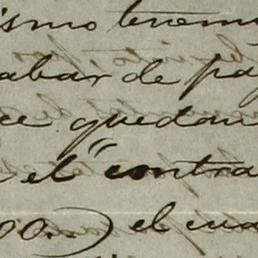 ismo tenem
abar de pa
ce quedan
el" contra
00..) el cua